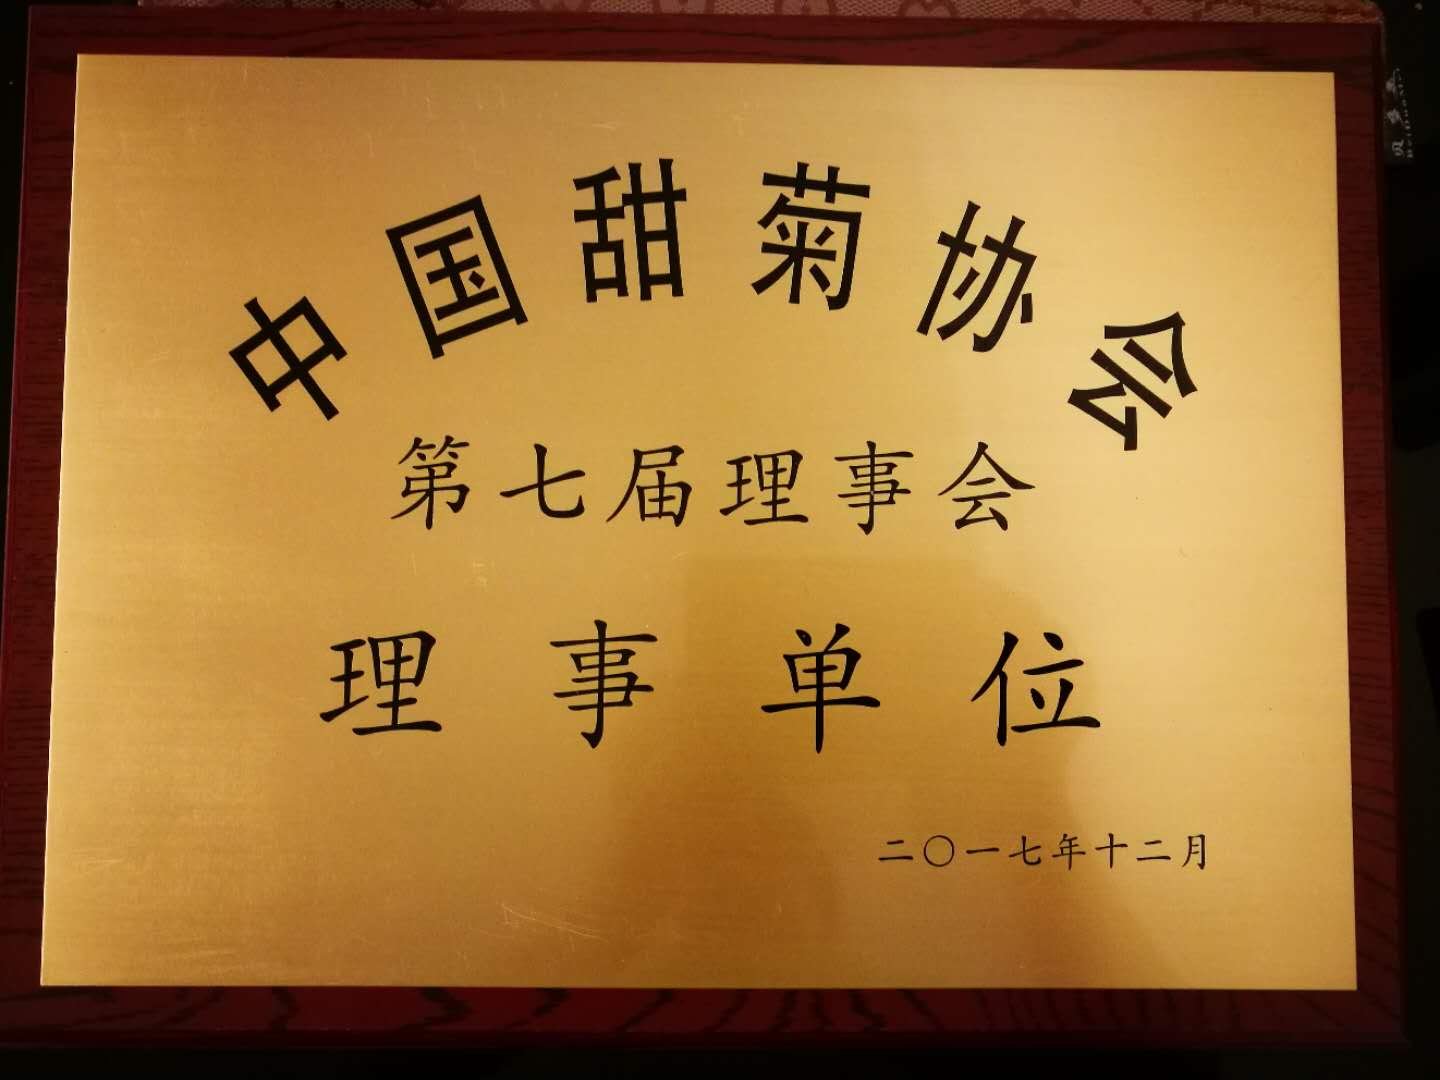 中国甜菊协会
第七届理事会
理事单位
二〇一七年十二月
贝多美